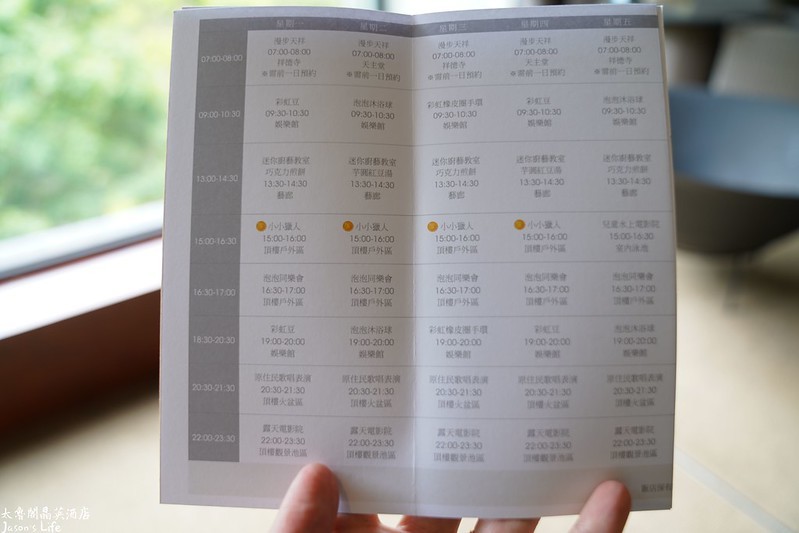 星期一 星期二 星期三 星期四 星期五
07:00-08:00
漫步天祥 漫步天祥 漫步天祥 漫步天祥 漫步天祥
07:00-08:00 07:00-08:00 07:00-08:00 07:00-08:00 07:00-08:00
祥德寺 天主堂 祥德寺 天主堂 祥德寺
※需前一日預約 ※需前一日預約 ※需前一日預約 ※需前一日預約 ※需前一日預約
09:00-10:30
彩虹豆 泡泡沐浴球 彩虹橡皮圈手環 彩虹豆 泡泡沐浴球
09:30-10:30 09:30-10:30 09:30-10:30 09:30-10:30 09:30-10:30
娛樂館 娛樂館 娛樂館 娛樂館 娛樂館
13:00-14:30
迷你廚藝教室 迷你廚藝教室 迷你廚藝教室 迷你廚藝教室 迷你廚藝教室
巧克力煎餅 芋圓紅豆湯 巧克力煎餅 芋圓紅豆湯 巧克力煎餅
13:30-14:30 13:30-14:30 13:30-14:30 13:30-14:30 13:30-14:30
藝廊 藝廊 藝廊 藝廊 藝廊
15:00-16:30
小小獵人 小小獵人 小小獵人 小小獵人 兒童水上電影院
15:00-16:00 15:00-16:00 15:00-16:00 15:00-16:00 15:00-16:30
頂樓戶外區 頂樓戶外區 頂樓戶外區 頂樓戶外區 室內泳池
16:30-17:00
泡泡同樂會 泡泡同樂會 泡泡同樂會 泡泡同樂會 泡泡同樂會
16:30-17:00 16:30-17:00 16:30-17:00 16:30-17:00 16:30-17:00
頂樓戶外區 頂樓戶外區 頂樓戶外區 頂樓戶外區 頂樓戶外區
18:30-20:30
彩虹豆 泡泡沐浴球 彩虹橡皮圈手環 彩虹豆 泡泡沐浴球
19:00-20:00 19:00-20:00 19:00-20:00 19:00-20:00 19:00-20:00
娛樂館 娛樂館 娛樂館 娛樂館 娛樂館
20:30-21:30
原住民歌唱表演 原住民歌唱表演 原住民歌唱表演 原住民歌唱表演 原住民歌唱表演
20:30-21:30 20:30-21:30 20:30-21:30 20:30-21:30 20:30-21:30
頂樓火盆區 頂樓火盆區 頂樓火盆區 頂樓火盆區 頂樓火盆區
22:00-23:30
露天電影院 露天電影院 露天電影院 露天電影院 露天電影院
22:00-23:30 22:00-23:30 22:00-23:30 22:00-23:30 22:00-23:30
頂樓觀景池區 頂樓觀景池區 頂樓觀景池區 頂樓觀景池區 頂樓觀景池區
飯店保有
太魯閣晶英酒店
Jason's Life